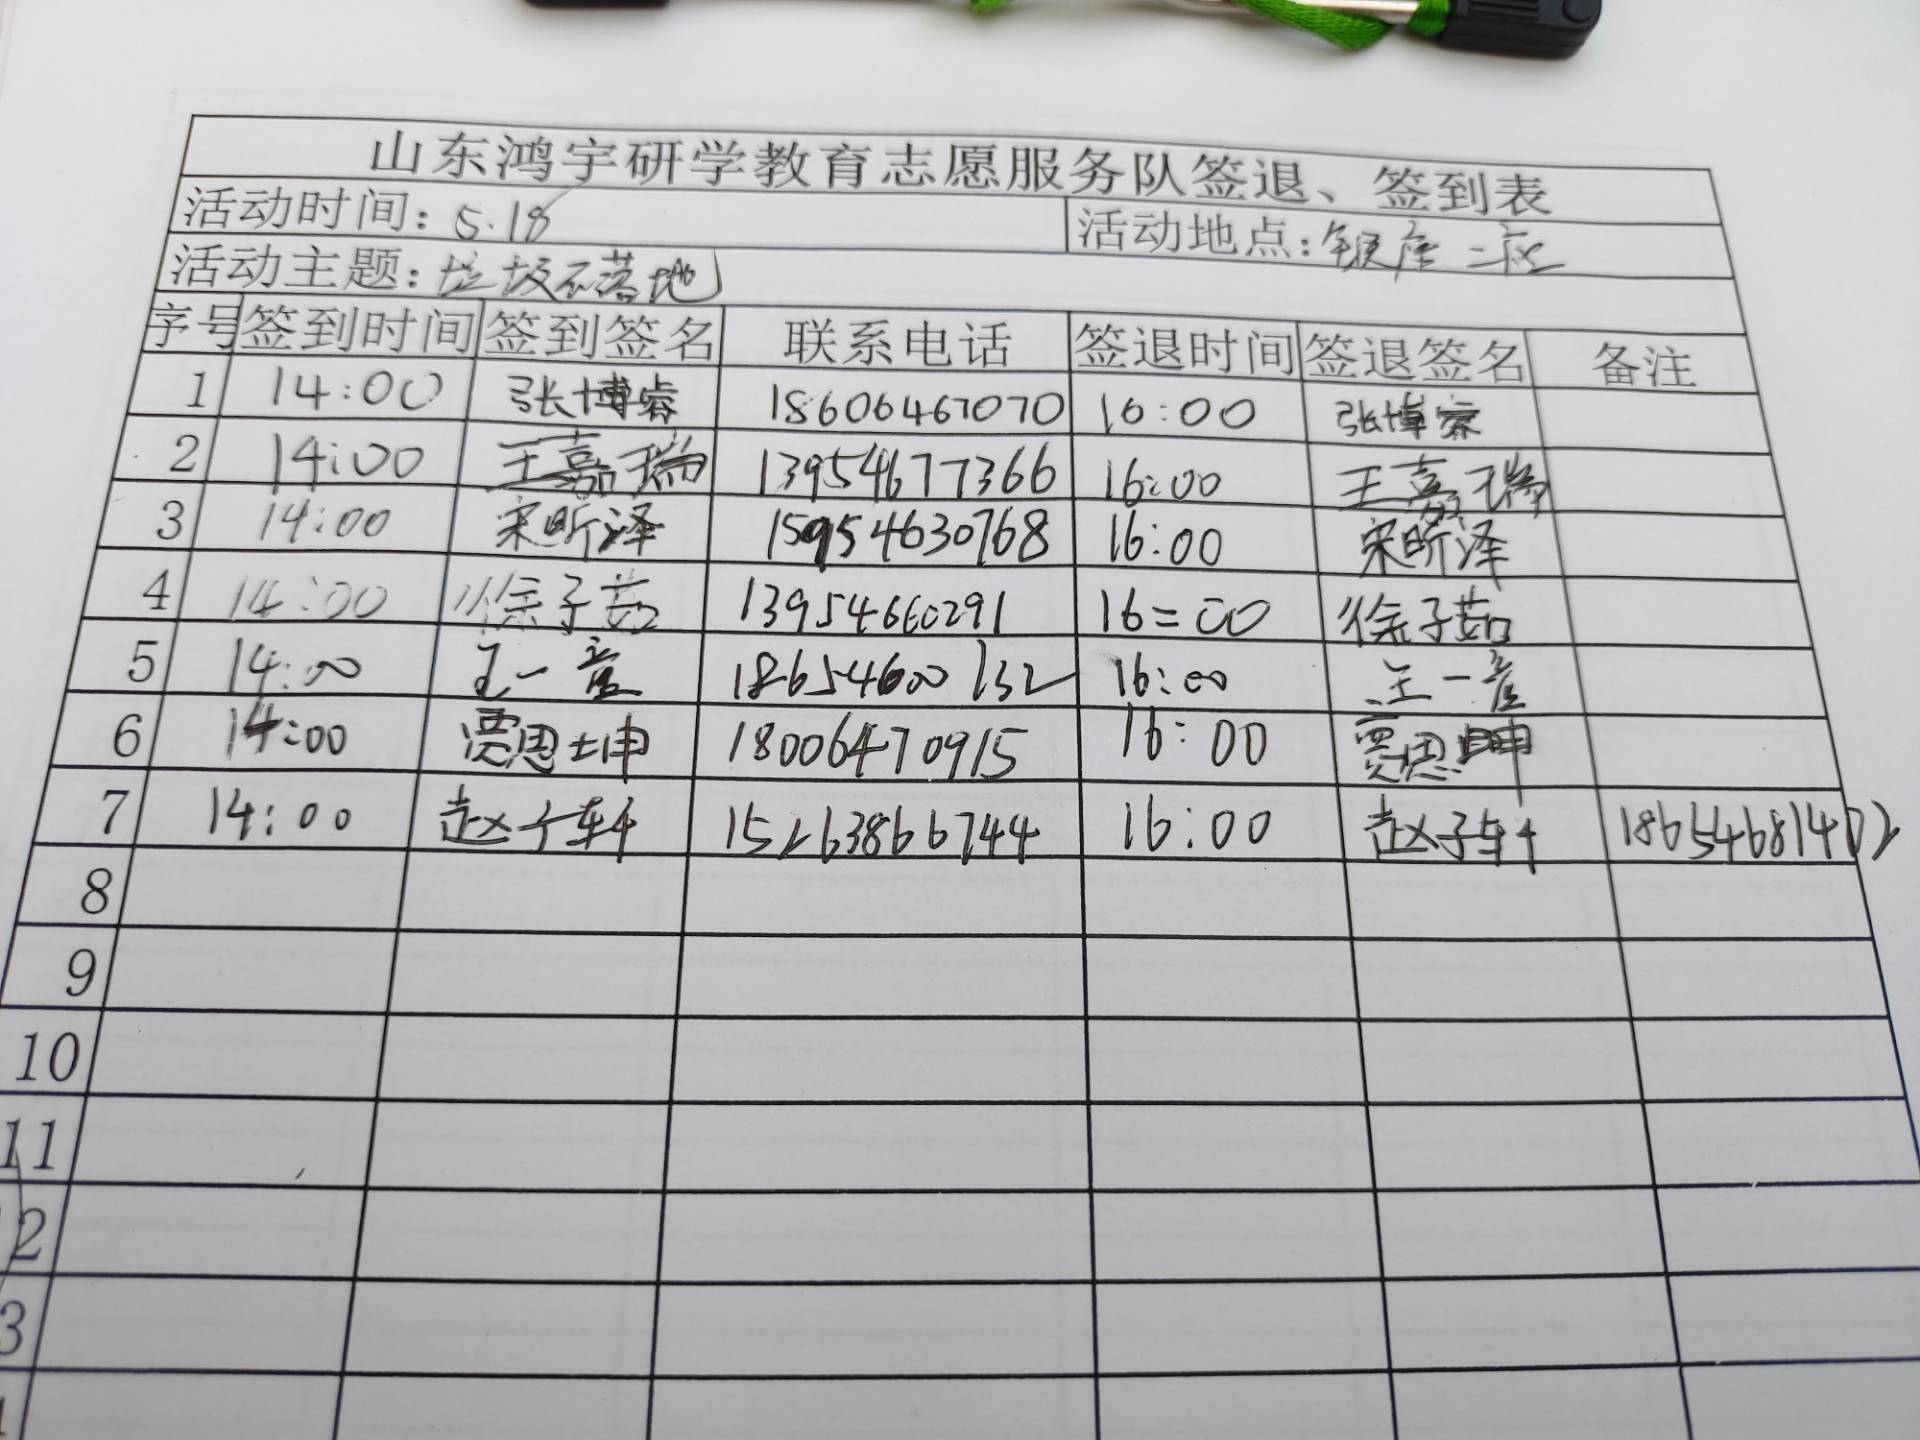 山东鸿宇研学教育志愿服务队签退、签到表
活动时间：5.18 活动地点：银座二区
活动主题：垃圾不落地
序号 签到时间 签到签名 联系电话 签退时间 签退签名 备注
1 14:00 张博睿 18606467070 16:00 张博睿
2 14:00 王嘉瑞 13954677366 16:00 王嘉瑞
3 14:00 宋昕泽 15954630768 16:00 宋昕泽
4 14:00 徐子茹 13954660291 16=00 徐子茹
5 14:00 王一 18654600132 16:00 王一
6 14:00 贾思坤 18006470915 16:00 贾思坤
7 14:00 赵子轩 15263866744 16:00 赵子轩 18654681402
8
9
10
11
12
3